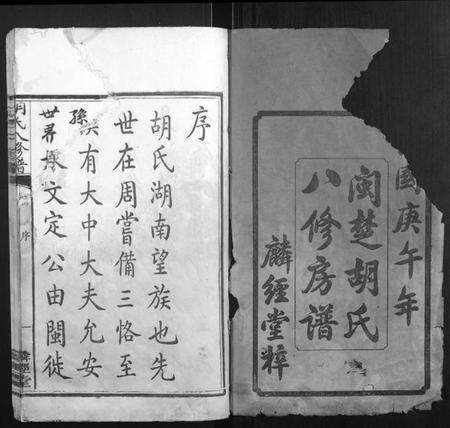 國庚午年
閩楚胡氏
八修房譜
麟經堂梓
序
胡氏湖南望族也先
世在周嘗備三恪至
孫
有大中大夫允安
世界
文定公由閩徙
氏八修譜
序
一
麟經堂